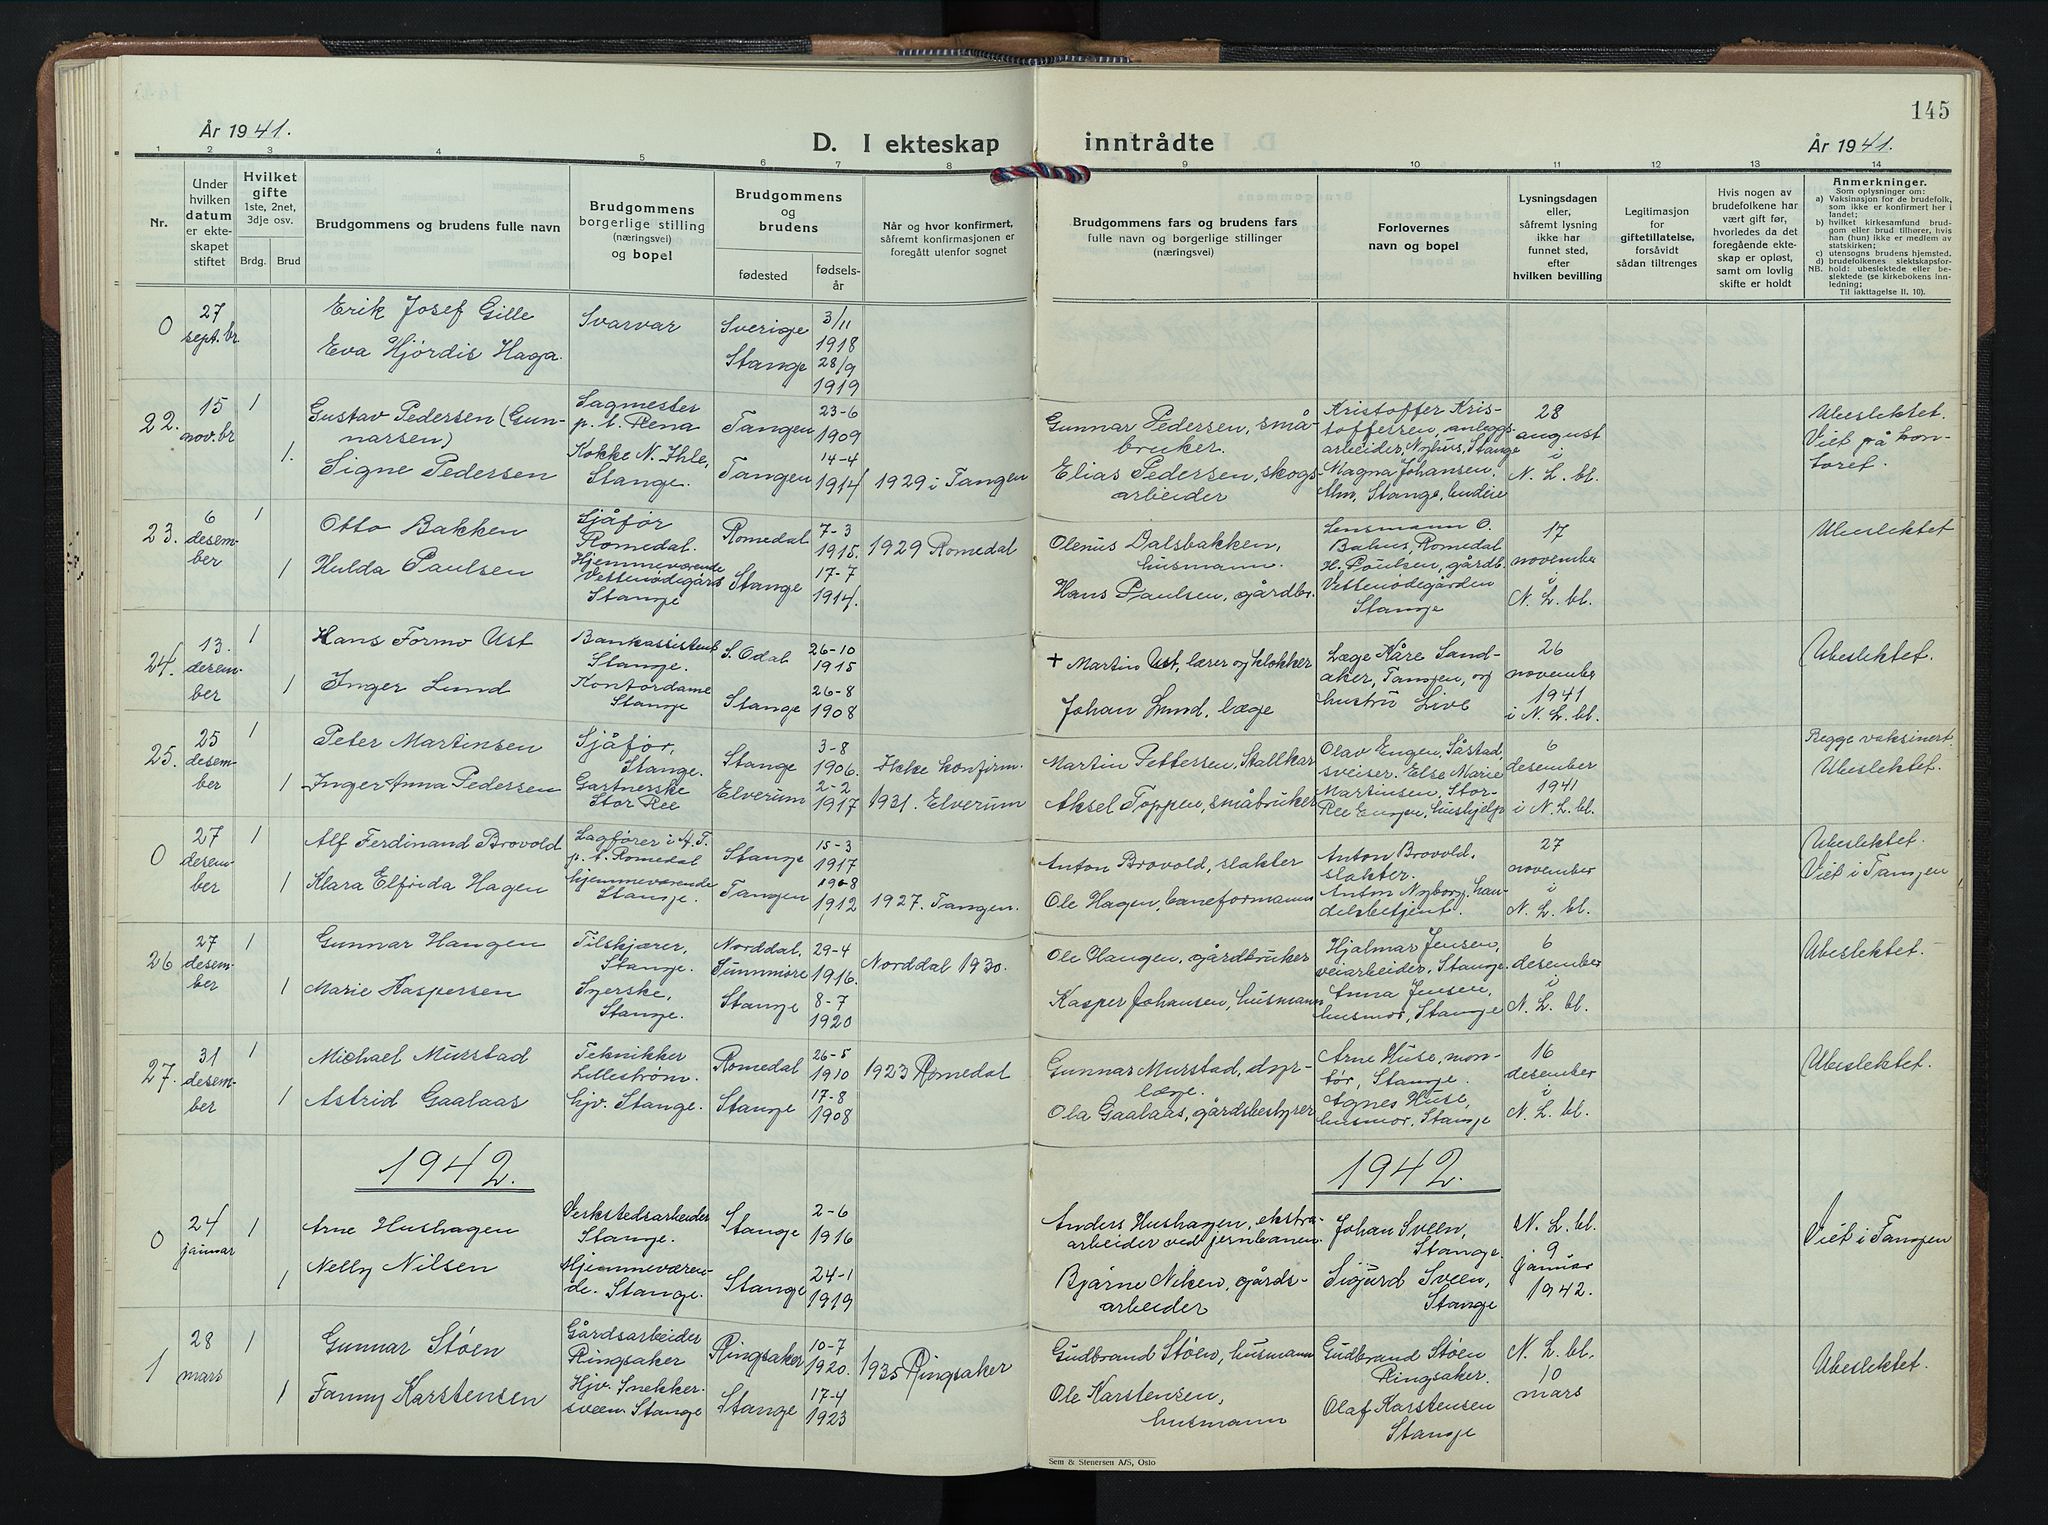 145
År 1941.
D. I ekteskap inntrådte
År 1941.
1 2 3 4 5 6 7 8 9 10 11 12 13 14
Nr.
Under hvilken datum er ekteskapet stiftet
Hvilket gifte 1ste, 2net, 3dje osv.
Brdg. Brud
Brudgommens og brudens fulle navn
Brudgommens borgerlige stilling (næringsvei) og bopel
Brudgommens og brudens
fødested
fødselsår
Når og hvor konfirmert, såfremt konfirmasjonen er foregått utenfor sognet
Brudgommens fars og brudens fars fulle navn og børgerlige stillinger (næringsvei)
Forlovernes navn og bopel
Lysningsdagen eller, såfremt lysning ikke har funnet sted, efter hvilken bevilling
Legitimasjon for giftetillatelse, forsåvidt sådan tiltrenges
Hvis nogen av brudefolkene har vært gift før, hvorledes da det foregående ekteskap er opløst, samt om lovlig skifte er holdt
Anmerkninger.
Som oplysninger om:
a) Vaksinasjon for de brudefolk, som ikke er konfirmert her i landet;
b) hvilket kirkesamfund brudgom eller brud tilhører, hvis han (hun) ikke er medlem av statskirken;
c) utensogns brudens hjemsted.
d) brudefolkenes slektskapsforhold: ubeslektede eller beslektede (se kirkebokens innledning;
NB.
Til iakttagelse II. 10).
0 27 sept.br
Erik Josef Gille Svarvar Sverige 3/11 1918
Eva Hjørdis Haga. Stange 28/9 1919
22. 15 nov.br 1
Gustav Pedersen (Gunnarsen) Sagmester p.t. Rena Tangen 23-6 1909
1. Signe Pedersen Kokke N. Ihle, Stange. Tangen 14-4 1914 1929 i Tangen
Gunnar Pedersen, småbruker.
Elias Pedersen, skogsarbeider
Kristoffer Kristoffersen, anleggsarbeider, Nyhus, Stange
Magna Johansen, Alm, Stange,
28 august i N. L. bl.
Ubeslektet. Viet på kontoret.
23. 6 desember 1
Otto Bakken Sjåfør Romedal. Romedal 7-3 1915. 1929 Romedal
1 Hulda Paulsen Hjemmeværende Stange Stange 17-7 1914.
Olenus Dalsbakken, husmann.
Hans Paulsen, gårdbr.
Lensmann O. Bahus, Romedal
H. Poulsen, gårdb. Vettenødegården Stange
17 november i N. L. bl.
Ubeslektet
24. 13. desember 1
Hans Formo Ust Bankassistent Stange. S. Odal 26-10 1915
1 Inger Lund Kontordame Stange Stange 26-8 1908
+ Martin Ust, lærer og klokker
Johan Lund, læge
Læge Kåre Sandaker, Tangen, og hustru Live
26 november 1941 i N. L. bl.
Ubeslektet.
25. 25 desember 1
Peter Martinsen Sjåfør, Stange. Stange 3-8 1906. Ikke konfirm.
1 Inger Anna Pedersen Gartnerske Stor Ree Elverum 2-2 1917 1931. Elverum
Martin Pettersen, Stallkar
Aksel Toppen, småbruker
Olav Engen, Såstad, sveiser. Else Marie Martinsen, Stor-Ree Engen, hushjelp
6 desember 1941 i N. L. bl.
Begge vaksinert. Ubeslektet.
0 27 desember 1
Alf Ferdinand Brovold Lagfører i A.T. p.t. Romedal Stange 15-3 1917
1 Klara Elfrida Hagen hjemmeværende Stange. Tangen 1912 1927. Tangen.
Anton Brovold, slakter
Ole Hagen, baneformann
Anton Brovold, slakter.
Anton Nyborg, handelsbetjent.
27 november i N. L. bl.
Ubeslektet. Viet i Tangen
26 27 desember 1
Gunnar Haugen Tilskjærer, Stange. Norddal, Sunnmøre 29-4 1916. Norddal 1930.
1 Marie Kaspersen Syerske, Stange. Stange 8-7 1920
Ole Haugen, gårdbruker
Kasper Johansen, husmann
Hjalmar Jensen, veiarbeider, Stange.
Anna Jensen, husmor, Stange
6 desember i N. L. bl.
Ubeslektet.
27. 31 desember 1
Michael Murstad Teknikker Lillestrøm. Romedal 26-5 1910 1923 Romedal
1 Astrid Gaalaas hjv. Stange. Stange 17-8 1908
Gunnar Murstad, dyrlæge.
Ola Gaalaas, gårdsbestyrer
Arne Huse, montør, Stange.
Agnes Huse, husmor, Stange
16 desember i N. L. bl.
Ubeslektet.
1942. 1942.
0 24 januar 1
Arne Hushagen Verkstedsarbeider Stange. Stange 2-6 1916
1 Nelly Nilsen Hjemmeværende. Stange. Stange 24-1 1919
Anders Hushagen, ekstraarbeider ved jernbanen.
Bjarne Nilsen, gårdsarbeider
Johan Sveen, Stange.
Sigurd Sveen, Stange
N. L. bl. 9 januar 1942.
Viet i Tangen
1 28 mars 1
Gunnar Støen Gårdsarbeider Ringsaker Ringsaker 10-7 1920. 1935 Ringsaker
1 Fanny Karstensen Hjv. Snekkersveen. Stange Stange 17-4 1923
Gudbrand Støen, husmann
Ole Karstensen, husmann
Gudbrand Støen Ringsaker.
Olaf Karstensen Stange
N. L. bl. 10 mars
Ubeslektet.
Sem & Stenersen A/S, Oslo